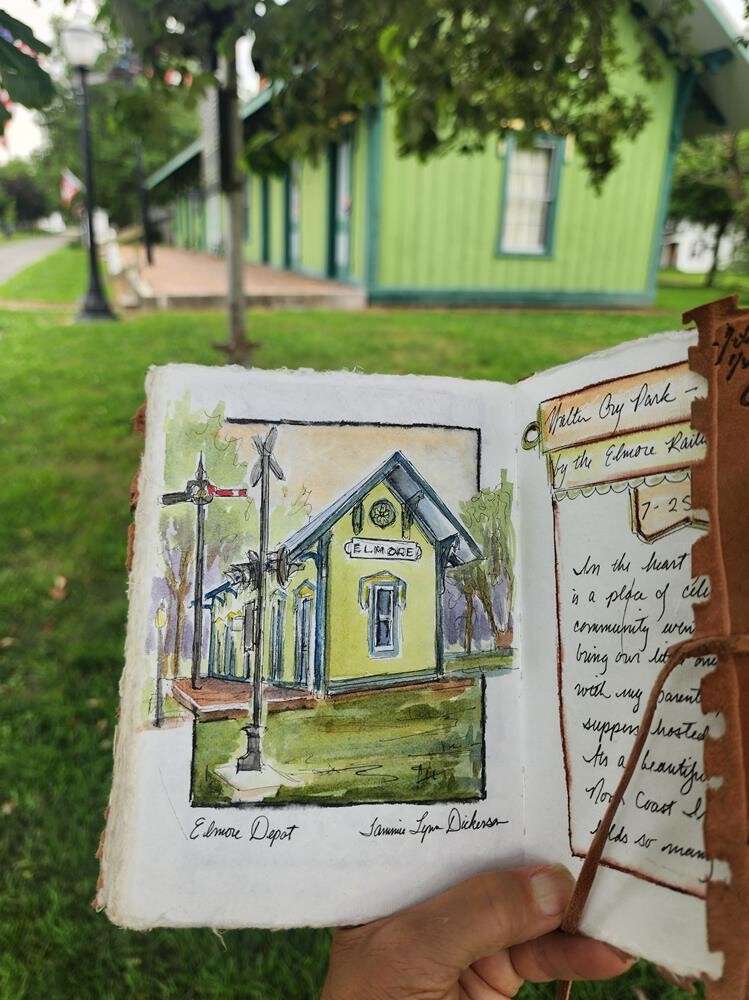 ELMORE
Elmore Depot
Tammie Lynn Dickerson
Walter Ory Park -
by the Elmore Railr
7-25
In the heart
is a place of cele
community
bring our
with my parent
supper hosted
Its a beautifu
North Coast I
holds so many